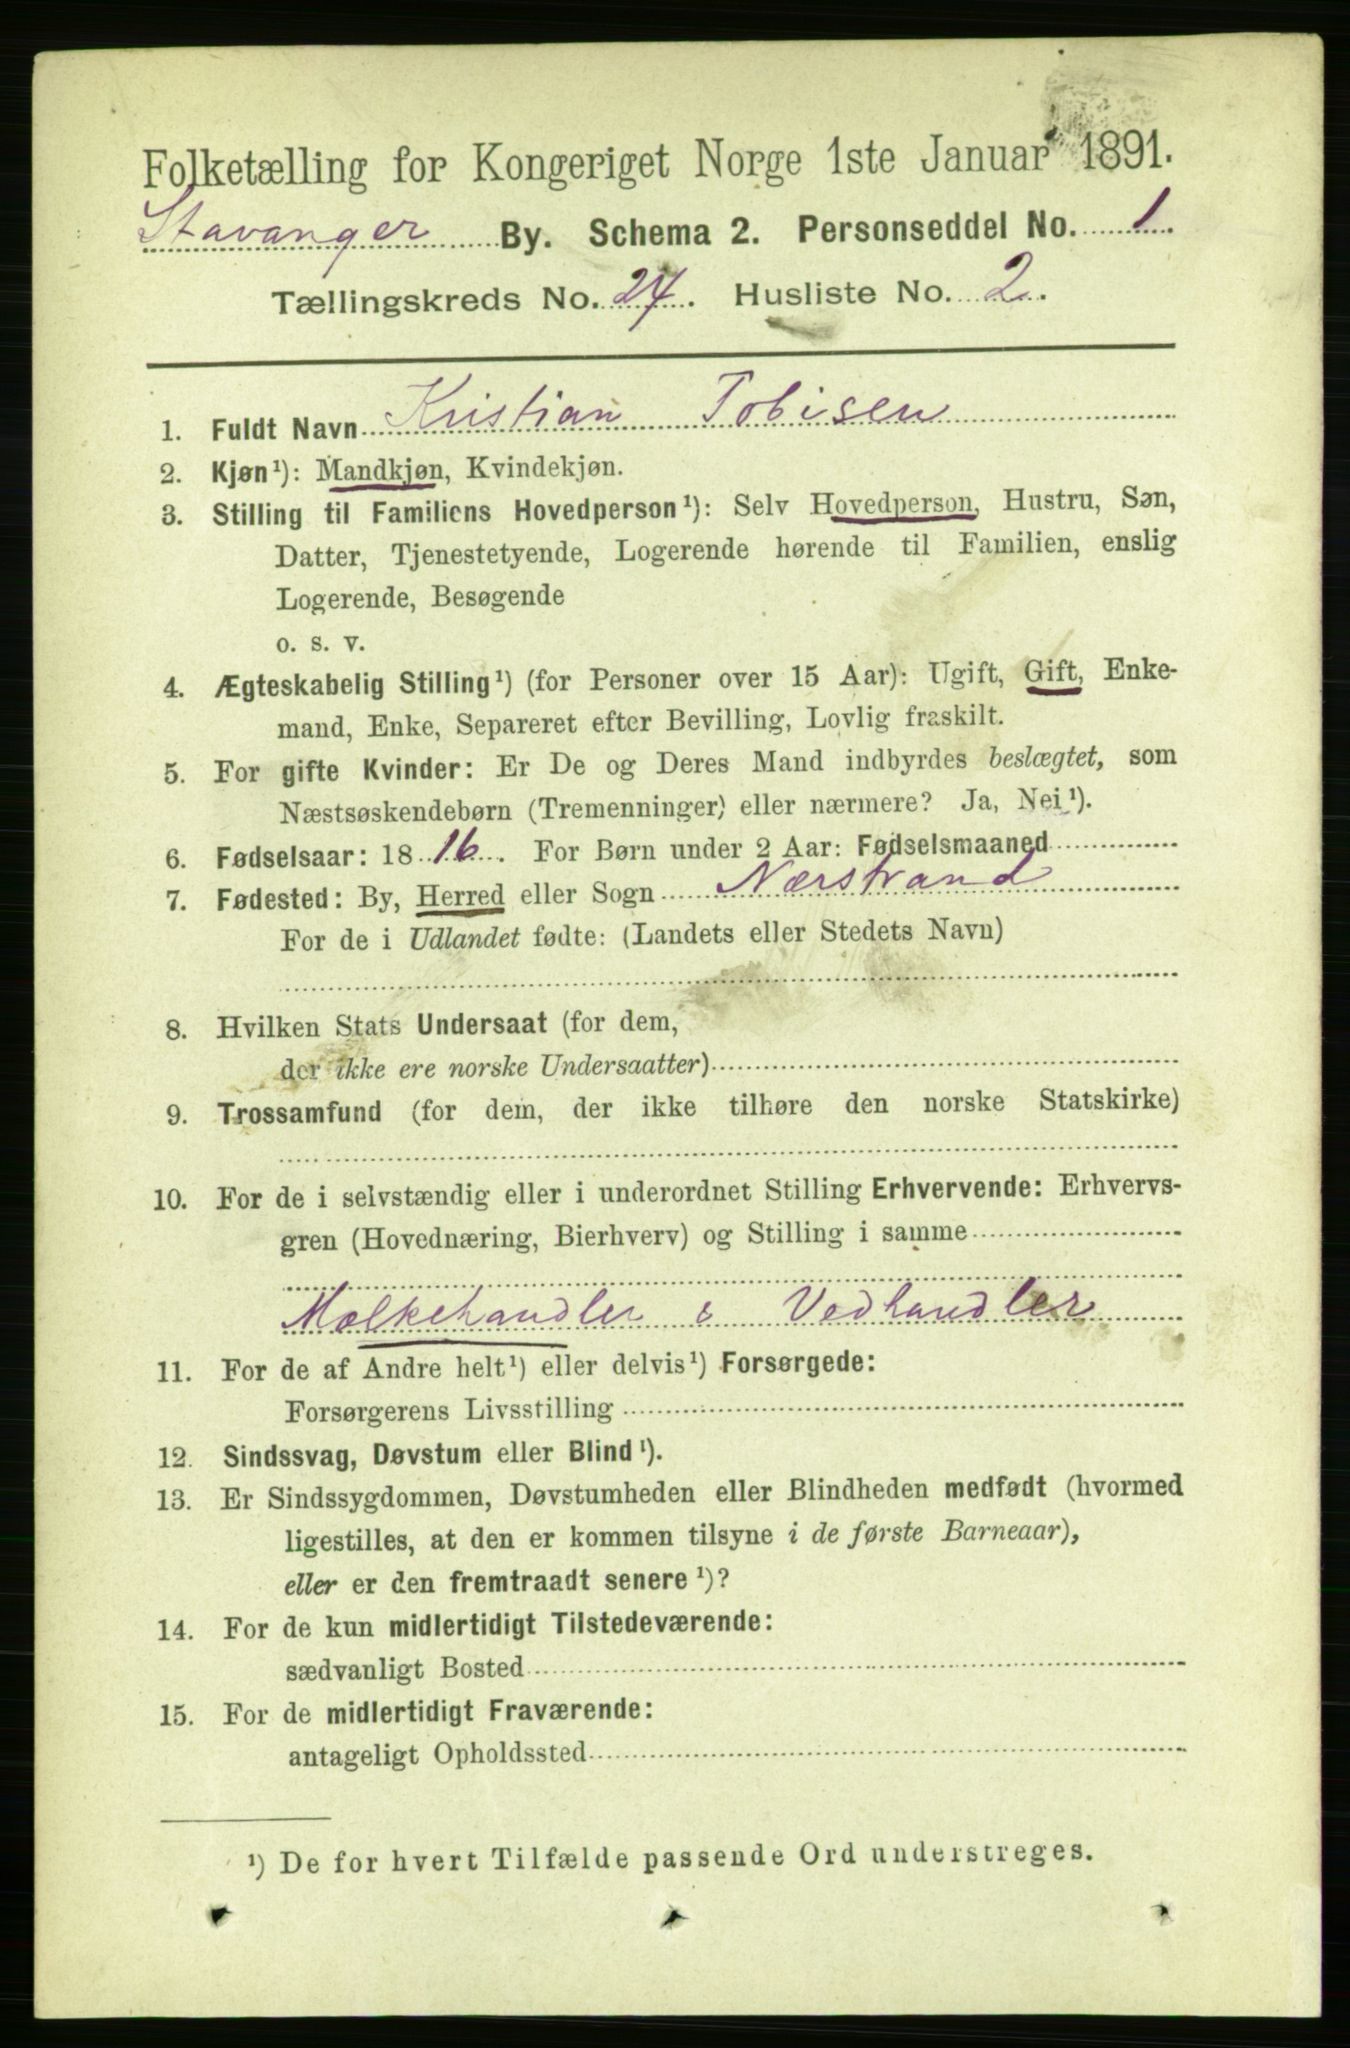 Folketælling for Kongeriget Norge 1ste Januar 1891.
Stavanger By. Schema 2. Personseddel No. 1.
Tællingskreds No. 24. Husliste No. 2.
1. Fuldt Navn Kristian Tobisen
2. Kjøn¹): Mandkjøn, Kvindekjøn.
3. Stilling til Familiens Hovedperson¹): Selv Hovedperson, Hustru, Søn,
Datter, Tjenestetyende, Logerende hørende til Familien, enslig
Logerende, Besøgende
o. s. v.
4. Ægteskabelig Stilling¹) (for Personer over 15 Aar): Ugift, Gift, Enke-
mand, Enke, Separeret efter Bevilling, Lovlig fraskilt.
5. For gifte Kvinder: Er De og Deres Mand indbyrdes beslægtet, som
Næstsøskendebørn (Tremenninger) eller nærmere? Ja, Nei¹).
6. Fødselsaar: 1816. For Børn under 2 Aar: Fødselsmaaned
7. Fødested: By, Herred eller Sogn Nærstrand
For de i Udlandet fødte: (Landets eller Stedets Navn)
8. Hvilken Stats Undersaat (for dem,
der ikke ere norske Undersaatter)
9. Trossamfund (for dem, der ikke tilhøre den norske Statskirke)
10. For de i selvstændig eller i underordnet Stilling Erhvervende: Erhvervs-
gren (Hovednæring, Bierhverv) og Stilling i samme
Mælkehandler & Vedhandler
11. For de af Andre helt¹) eller delvis¹) Forsørgede:
Forsørgerens Livsstilling
12. Sindssvag, Døvstum eller Blind¹).
13. Er Sindssygdommen, Døvstumheden eller Blindheden medfødt (hvormed
ligestilles, at den er kommen tilsyne i de første Barneaar),
eller er den fremtraadt senere¹)?
14. For de kun midlertidigt Tilstedeværende:
sædvanligt Bosted
15. For de midlertidigt Fraværende:
antageligt Opholdssted
¹) De for hvert Tilfælde passende Ord understreges.